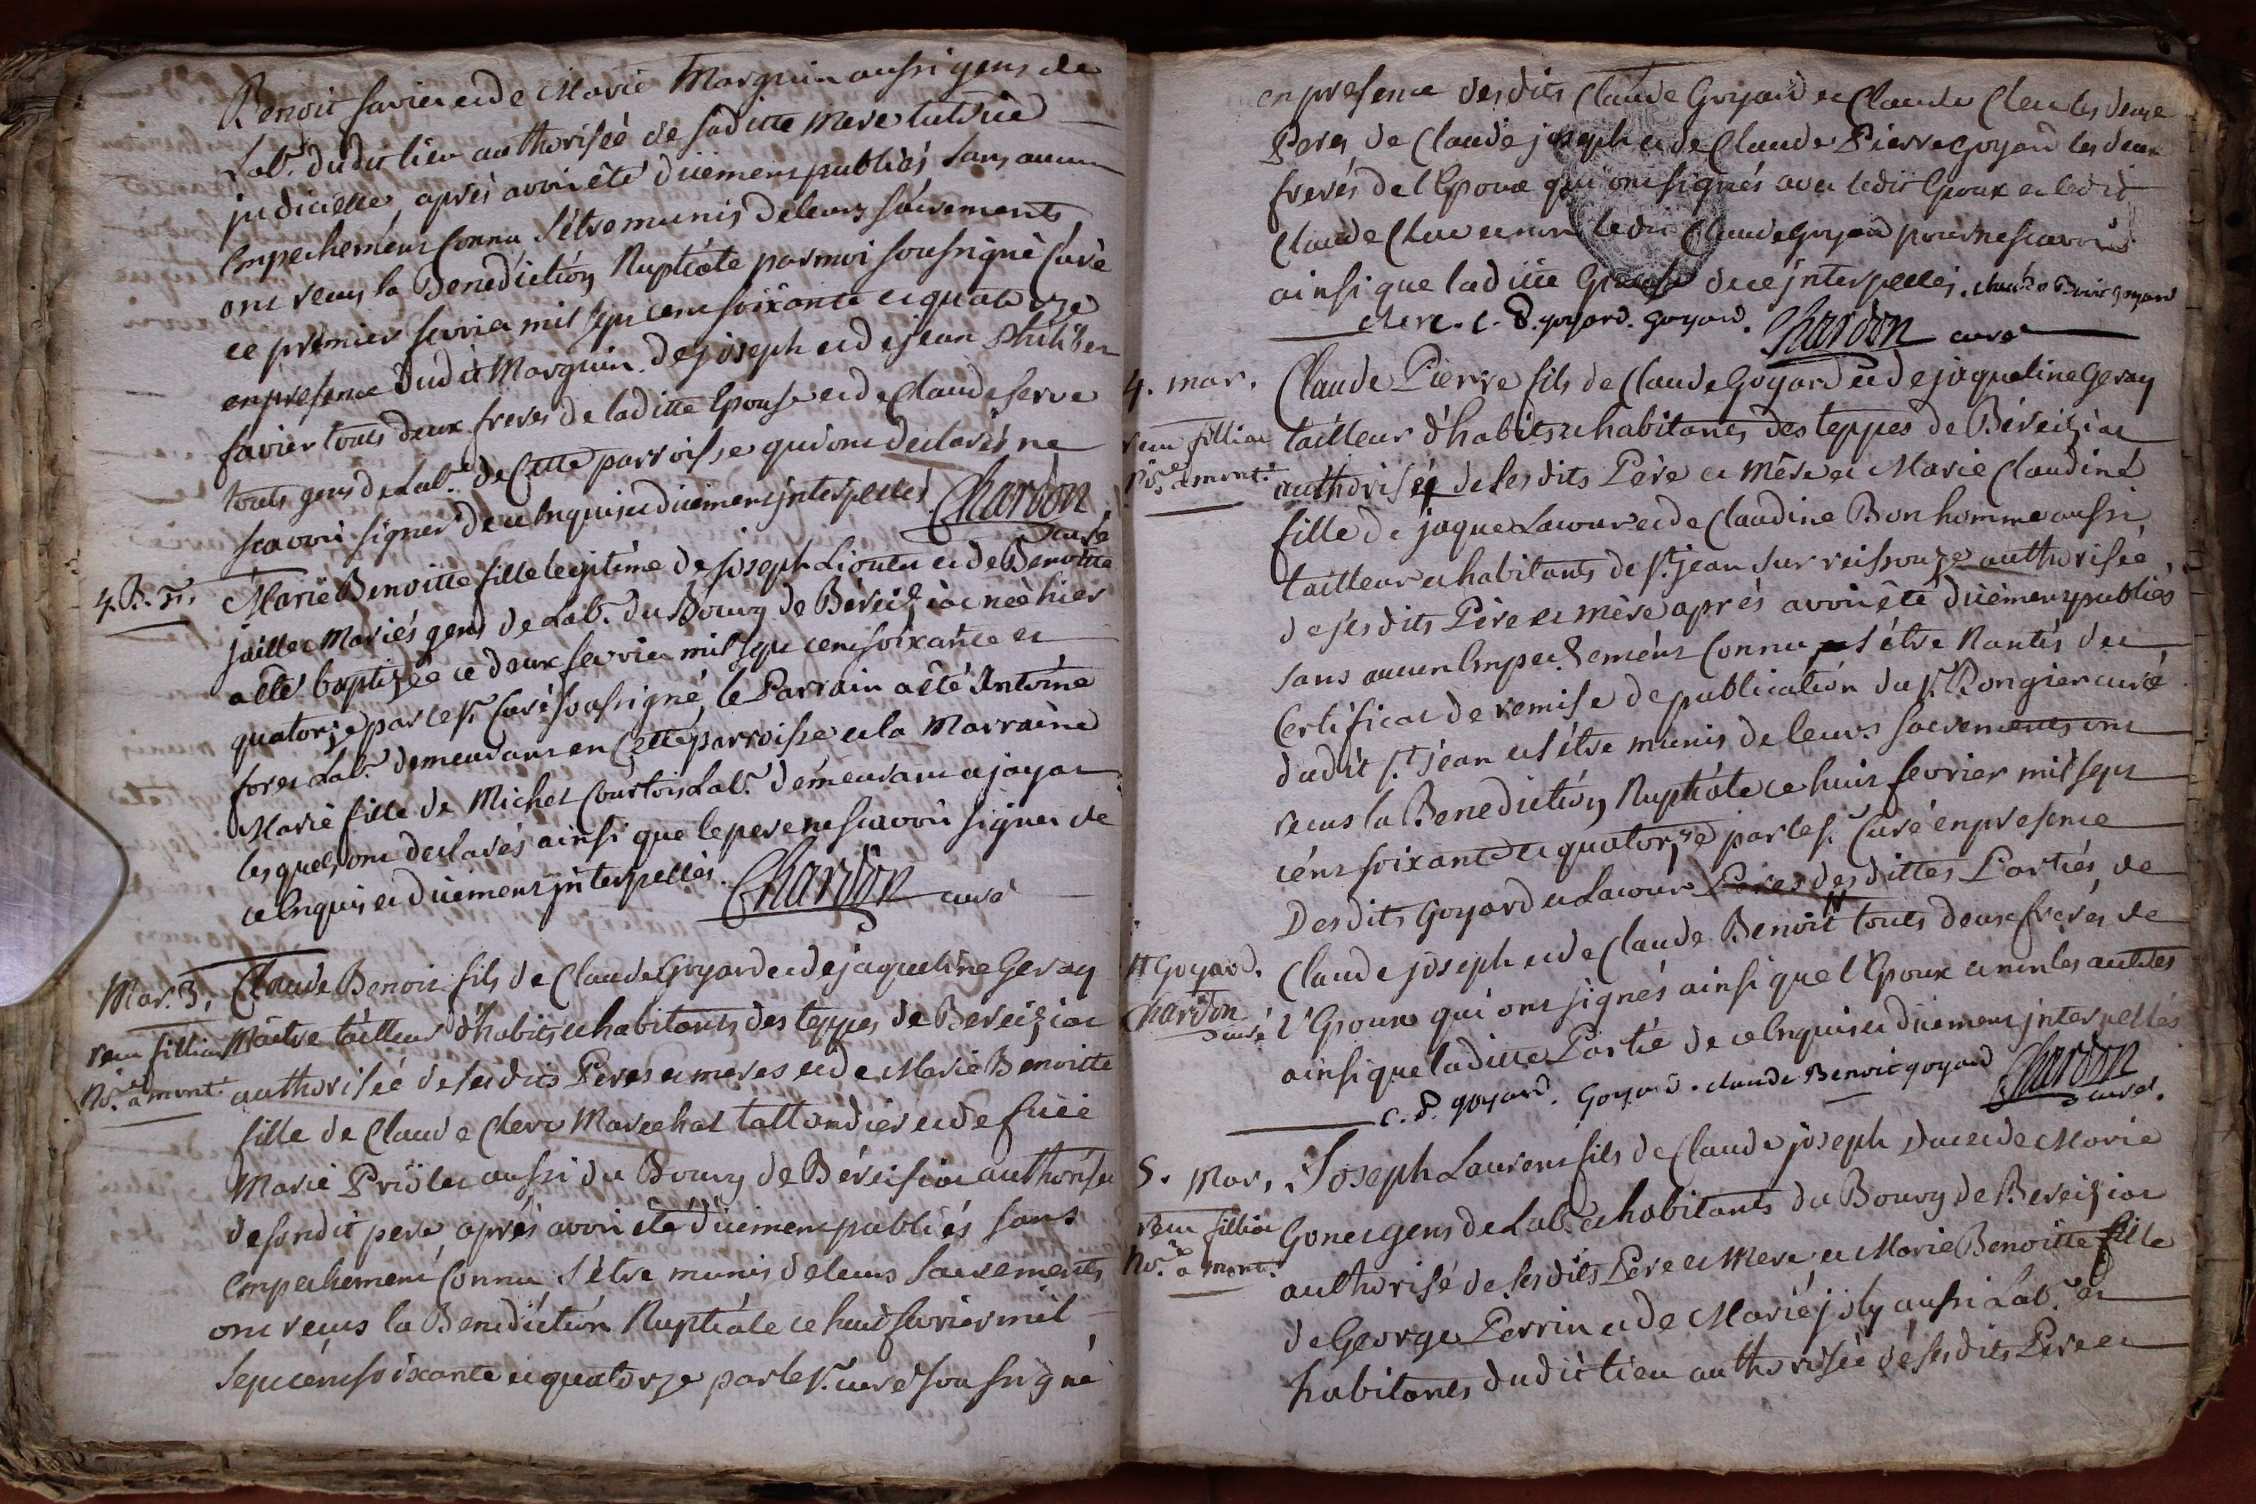 Benoit favier et de Marie Marguin aussi gens de
Lab.r dudit lieu authorisée de saditte mere tutrice
judicielle, après avoir été düement publiés, sans aucun
Empechement Connu S'étre munis de leurs sacrements
ont recus la Benediction Nuptiale par moi soussigné Curé
ce premier fevrier mil sept cent soixante et quatorze
en presence dudit Marguin. de joseph et de jean Philiber
favier touts deux freres de laditte Epouse et de Claude ferve
touts gens de Lab.r de Cette parroisse qui ont declarés ne
scavoir signer de ce Enquis et düement interpellés Chardon
curé
4. B. Marie Benoitte fille legitime de joseph Lionet et de Benoitte
jaillet Mariés gens de Lab.r du Bourg de Béreiziat neé hier
a été baptizée ce deux fevrier mil sept cent soixante et
quatorze par le sr. Curé soussigné, le Parrain a été Antoine
foret Lab.r demeurant en Cette parroisse et la Marraine
Marie fille de Michel Courtois Lab.r demeurant a jayat
lesquels ont declarés ainsi que le pere ne scavoir signer de
ce Enquis et düement interpellés. Chardon curé
Mar. 3. Claude Benoit fils de Claude Goyard et de jaqueline Geray
Maitre tailleur d'habits et habitants des teppes de Bereiziat
authorisé de ses dits Peres et meres et de Marie Benoitte
recu fillion
No.re a mont.
fille de Claude Clerc Marechal tattondier et de fuë
Marie Pridet aussi du Bourg de Béreisiat authorisée
de sondit pere après avoir été düement publiés sans
Empechement Connu, S'étre munis de leurs Sacrements
ont recus la Benediction Nuptiale ce huit fevrier mil
Sept cent soixante et quatorze par le sr. curé soussigné
en presence desdits Claude Goyard et Claude Clerc les deux
Peres de Claude joseph et de Claude Pierre Goyard les deux
freres de l'Epoux qui ont signés avec ledit Epoux et ledit
Claude Clerc et non ledit Claude Goyard pour ne scavoir
ainsi que laditte Epouse de ce interpellés. claude Benoit goyard
clerc. c. P. goyard. Goyard. Chardon curé
4. mar. Claude Pierre fils de Claude Goyard et de jaqueline Geray
tailleur d'habits et habitants des teppes de Béreiziat
recu fillion
No.re a mont.
authorisé de ses dits Père et Mère et Marie Claudine
fille de jaque Lacour et de Claudine Bonhomme aussi
tailleur et habitants de St. jean sur reissouze authorisée
de ses dits Père et mère après avoir été düement publiés
sans aucun Empechement Connu S'étre Nantis du
Certificat de remise de publication du sr. Rongier curé
dudit St. jean et s'étre munis de leurs sacrements ont
recus la Benediction Nuptiale ce huit fevrier mil sept
cent soixante et quatorze par le sr. Curé en presence
Desdits Goyard et Lacour Peres desdittes Parties, de
Claude joseph et de Claude Benoit # touts deux freres de
# Goyard.
Chardon
curé
l'Epoux qui ont signés ainsi que l'Epoux et non les autres
ainsi que laditte Partie de ce Enquis et düement interpellés
c. P. goyard. Goyard. claude Benoit goyard Chardon
curé.
5. Mar. Joseph Laurent fils de Claude joseph et de Marie
recu fillion
No.re a mont.
Gonet gens de Lab.r et habitants du Bourg de Bereiziat
authorisé de ses dits Père et Mere et Marie Benoitte fille
de George Perrin et de Marie joly aussi Lab.r et
habitants dudit lieu authorisée de ses dits Pere et